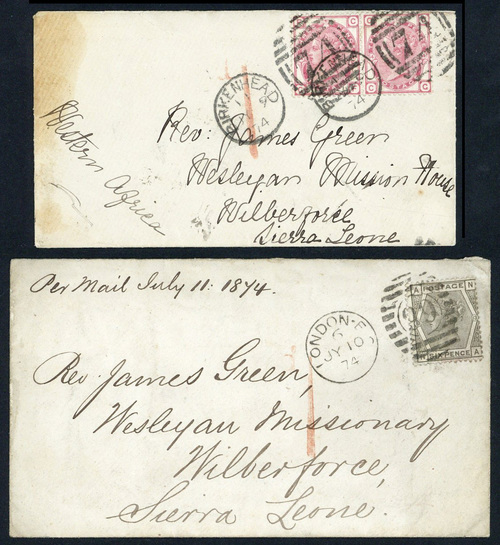 C G
G C
BIRKENHEAD
74
74
Western Africa
Rev: James Green
Wesleyan Mission House
Wilberforce
Sierra Leone
Per Mail July 11: 1874.
LONDON-E
JY 10
74
A POSTAGE N
SIXPENCE A
Rev. James Green,
Wesleyan Missionary
Wilberforce,
Sierra Leone.